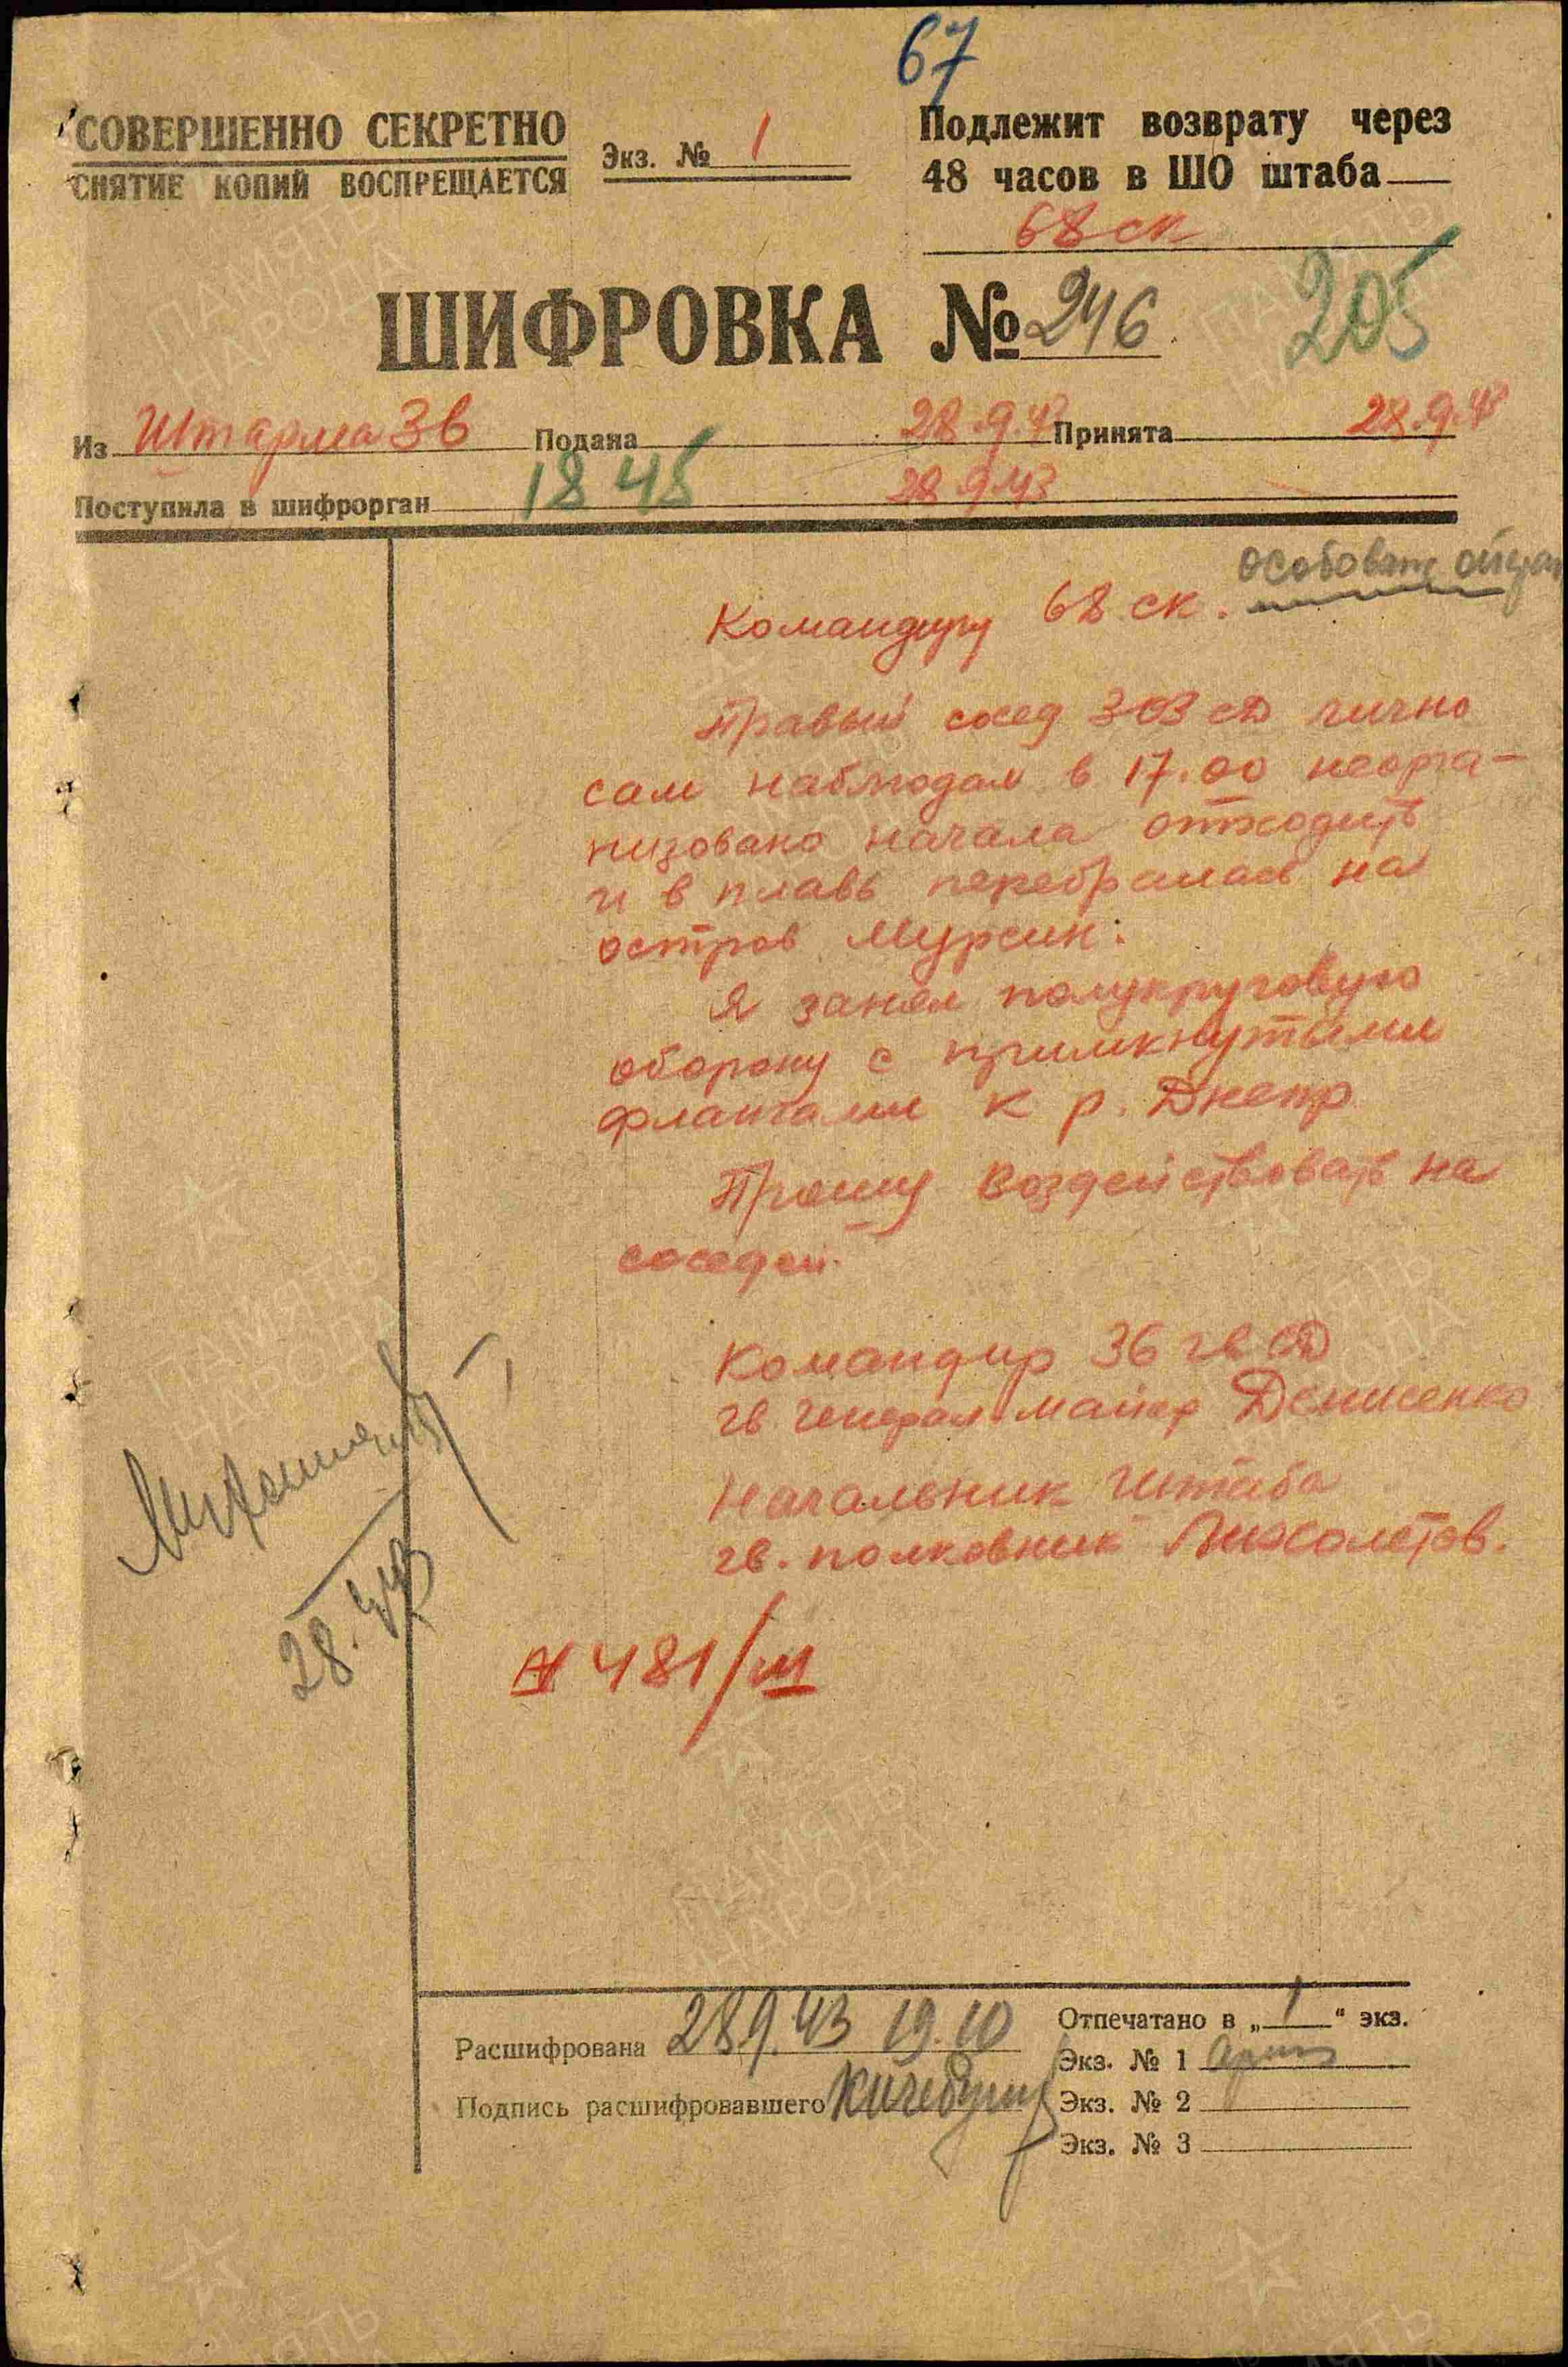 67
СОВЕРШЕННО СЕКРЕТНО
СНЯТИЕ КОПИЙ ВОСПРЕЩАЕТСЯ
Экз. № 1
Подлежит возврату через
48 часов в ШО штаба
68 ск
ШИФРОВКА № 246
205
Из Штарма 3в Подана 28.9.43 Принята 28.9.43
Поступила в шифрорган 18 45 28.9.43
Командиру 68 ск.
Правый сосед 303 сд лично
сам наблюдал в 17.00 неорга-
низовано начала отходить
и в плавь перебралась на
остров Мурсин.
Я занял полукруговую
оборону с примкнутыми
флангами к р. Днепр
Прошу воздействовать на
соседей.
Командир 36 гв сд
гв. генерал-майор Денисенко
Начальник штаба
гв. полковник Лихолетов.
28.9.43
№ 481/ш
Расшифрована 28.9.43 19.10
Подпись расшифровавшего
Отпечатано в „1“ экз.
Экз. № 1
Экз. № 2
Экз. № 3
ПАМЯТЬ
НАРОДА